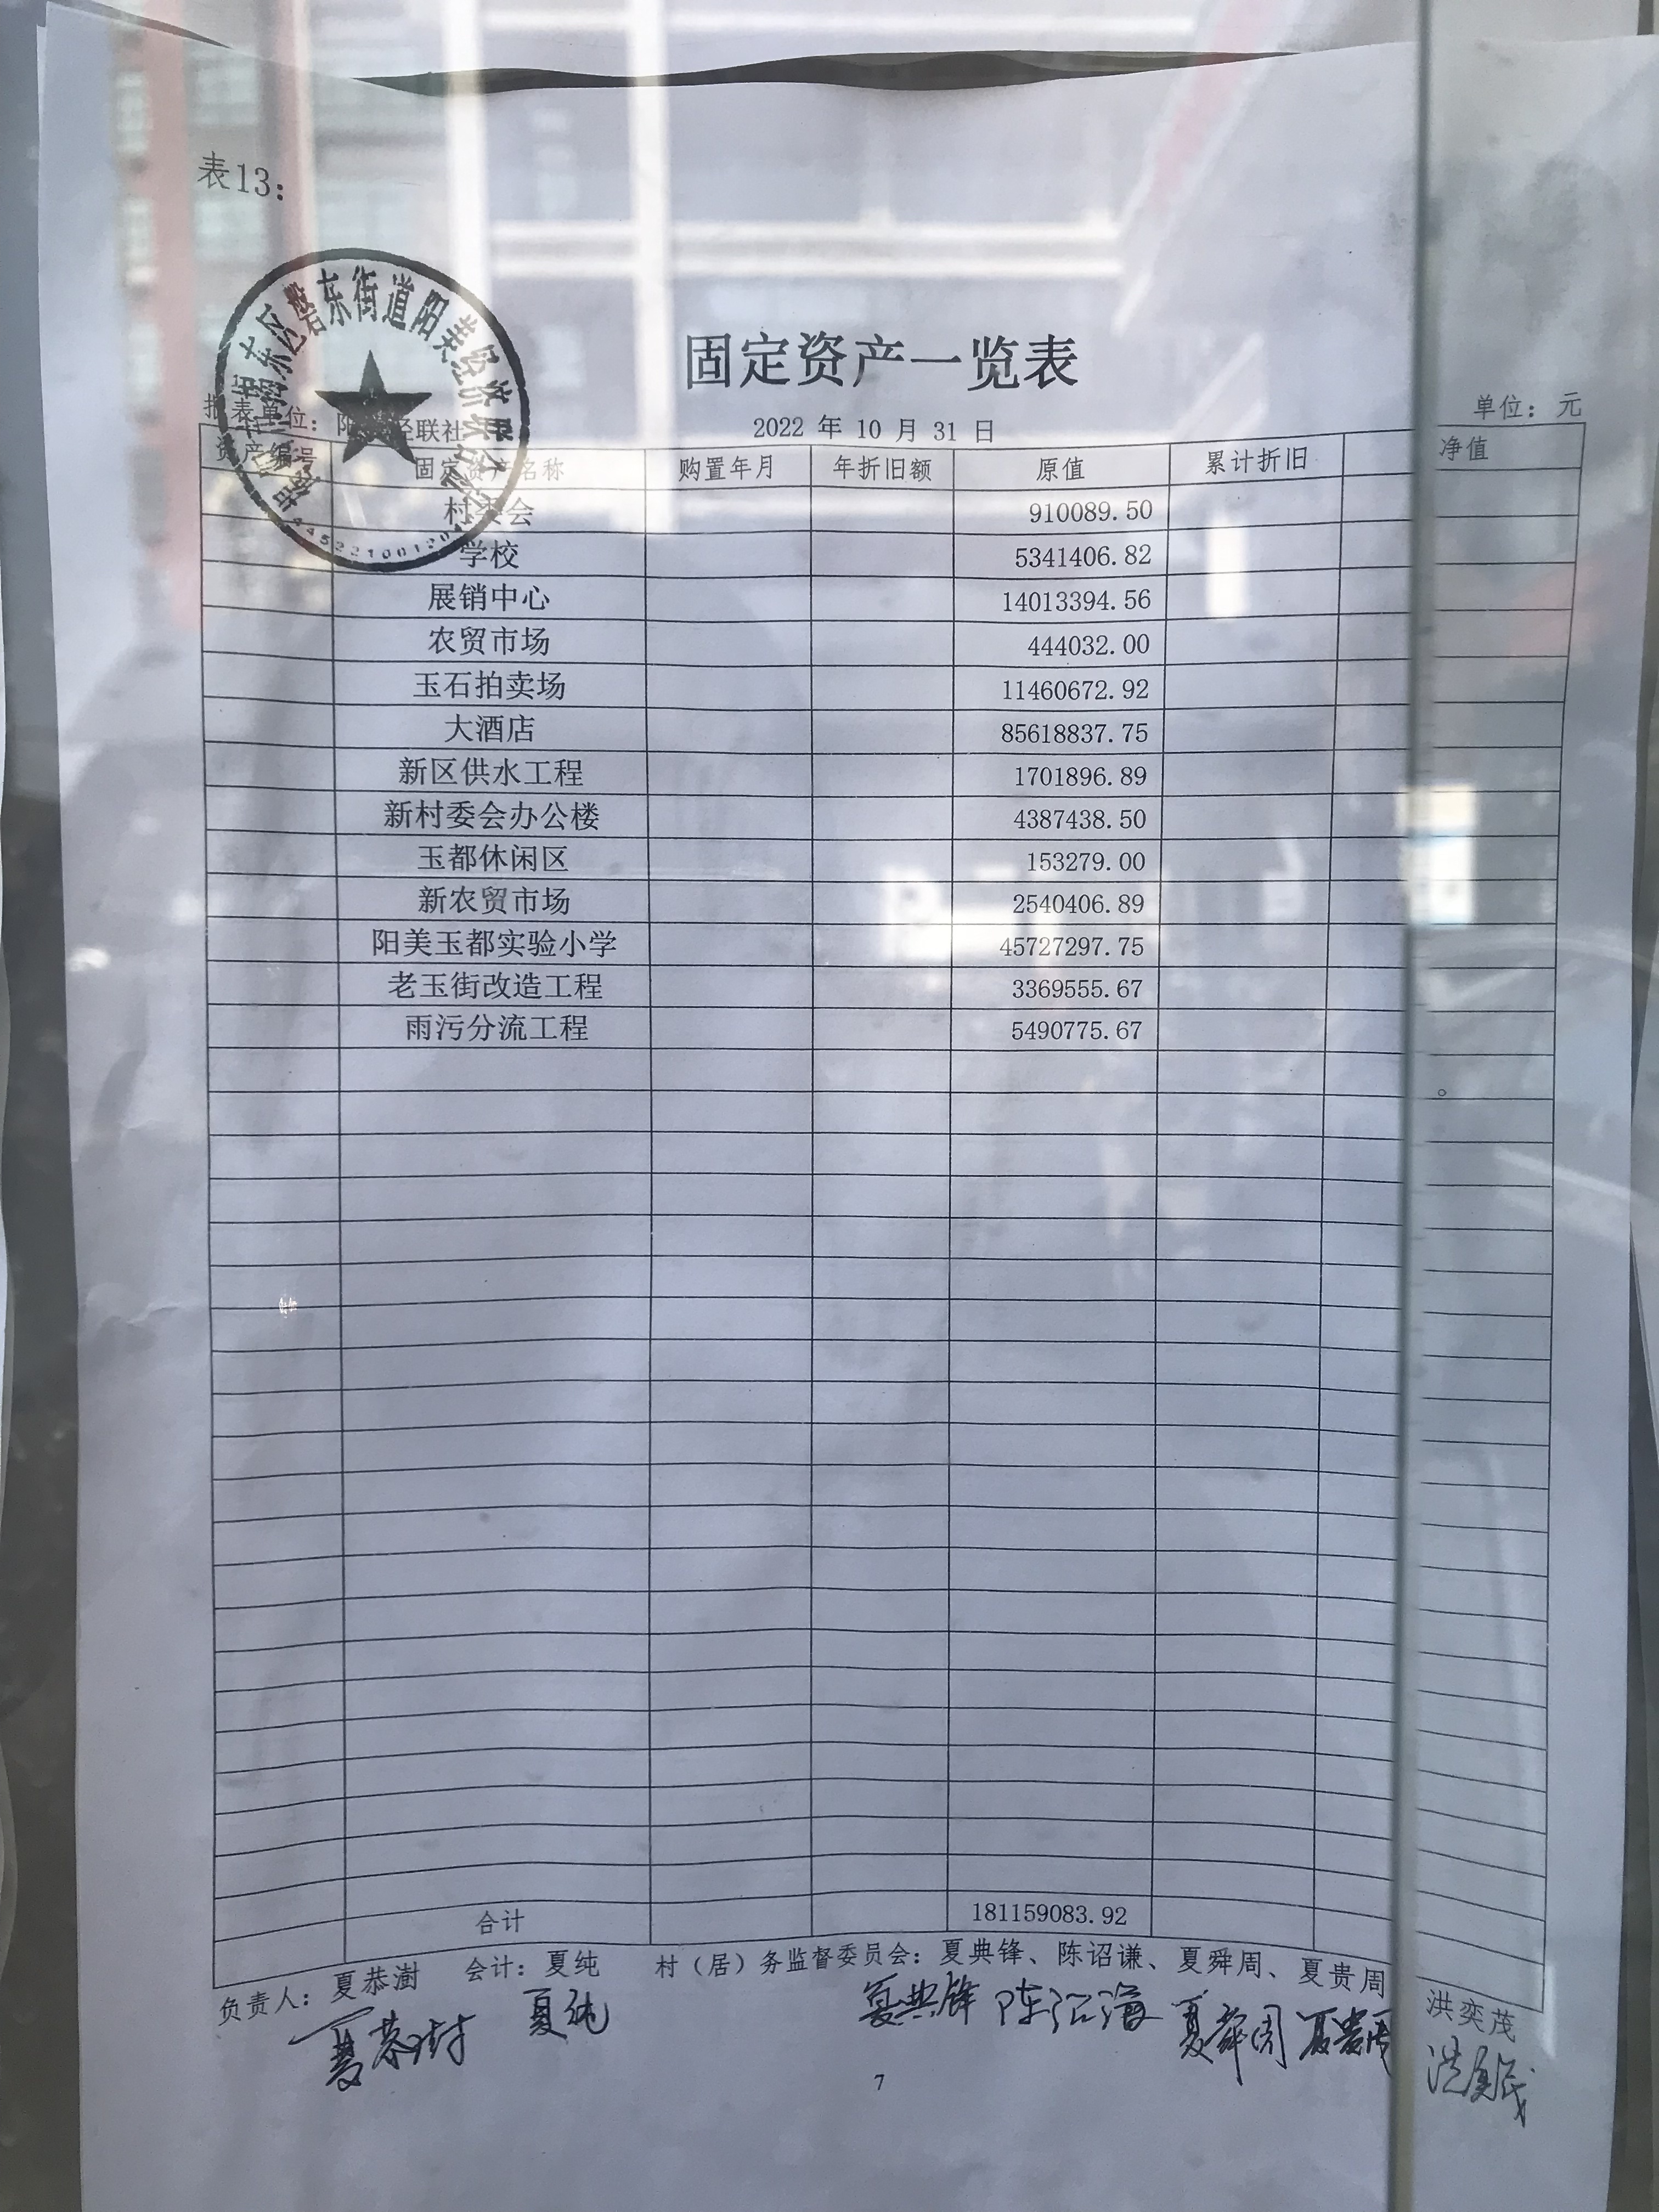 表13：
固定资产一览表
2022 年 10 月 31 日
单位：元
经联社
固定资产名称 购置年月 年折旧额 原值 累计折旧 净值
村委会 910089.50
学校 5341406.82
展销中心 14013394.56
农贸市场 444032.00
玉石拍卖场 11460672.92
大酒店 85618837.75
新区供水工程 1701896.89
新村委会办公楼 4387438.50
玉都休闲区 153279.00
新农贸市场 2540406.89
阳美玉都实验小学 45727297.75
老玉街改造工程 3369555.67
雨污分流工程 5490775.67
合计 181159083.92
负责人：夏恭澍 会计：夏纯 村（居）务监督委员会：夏典锋、陈诏谦、夏舜周、夏贵周 洪奕茂
夏恭澍 夏纯 夏典锋 夏舜周 夏贵周
7
东区磐东街道阳美经济联合社